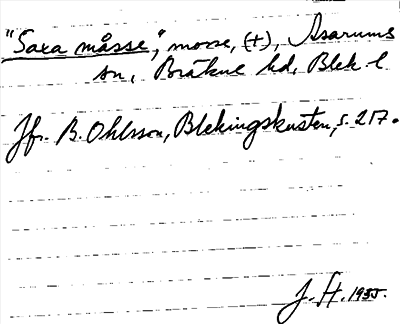 "Saxa måsse", mosse, (+), Asarums
sn, Bräkne hd, Blek. l.
Jfr. B. Ohlsson, Blekingskusten, s. 217.
J. H. 1955.